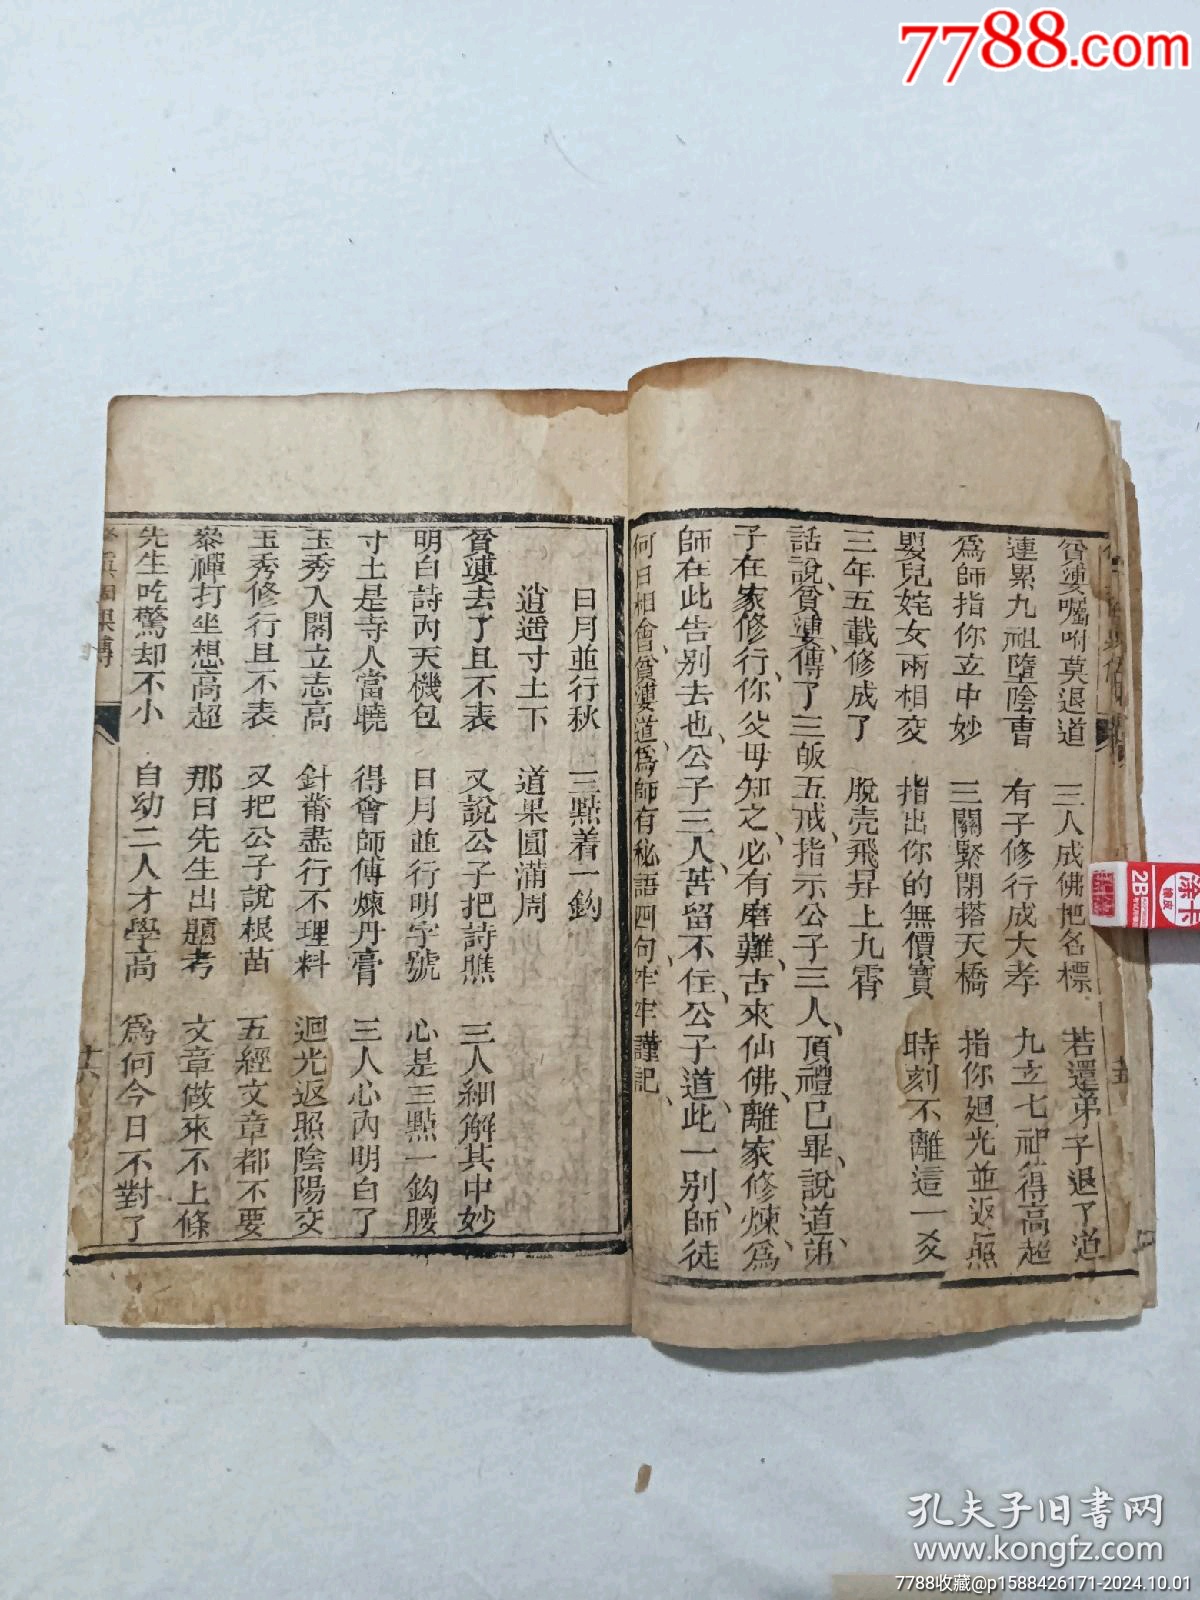 7788.com
貧婆囑咐莫退道 三人成佛把名標 若還弟子退了道
連累九祖墮陰曹 有子修行成大孝 九玄七祖得高超
為師指你立中妙 三關緊閉搭天橋 指你廻光並返照
嬰兒姹女兩相交 指出你的無價寶 時刻不離這一爻
三年五載修成了 脫壳飛昇上九霄
話說貧婆傳了三皈五戒、指示公子三人、頂禮已畢、說道弟
子在家修行、你父母知之、必有磨難、古來仙佛、離家修煉、為
師在此告別去也、公子三人、苦留不住、公子道、此一別、師徒
何日相會、貧婆道、為師有秘語四句、牢牢謹記、
日月並行秋 三點着一鈎
逍遙寸土下 道果圓滿周
貧婆去了且不表 又說公子把詩瞧 三人細解其中妙
明白詩內天機包 日月並行明字號 心是三點一鈎腰
寸土是寺人當曉 得會師傅煉丹膏 三人心內明白了
玉秀入閣立志高 針黹盡行不理料 迴光返照陰陽交
玉秀修行且不表 又把公子說根苗 五經文章都不要
叅禪打坐想高超 那日先生出題考 文章做來不上條
先生吃驚却不小 自幼二人才學高 為何今日不對了
十六
2B
孔夫子旧书网
www.kongfz.com
7788收藏@p1588426171-2024.10.01